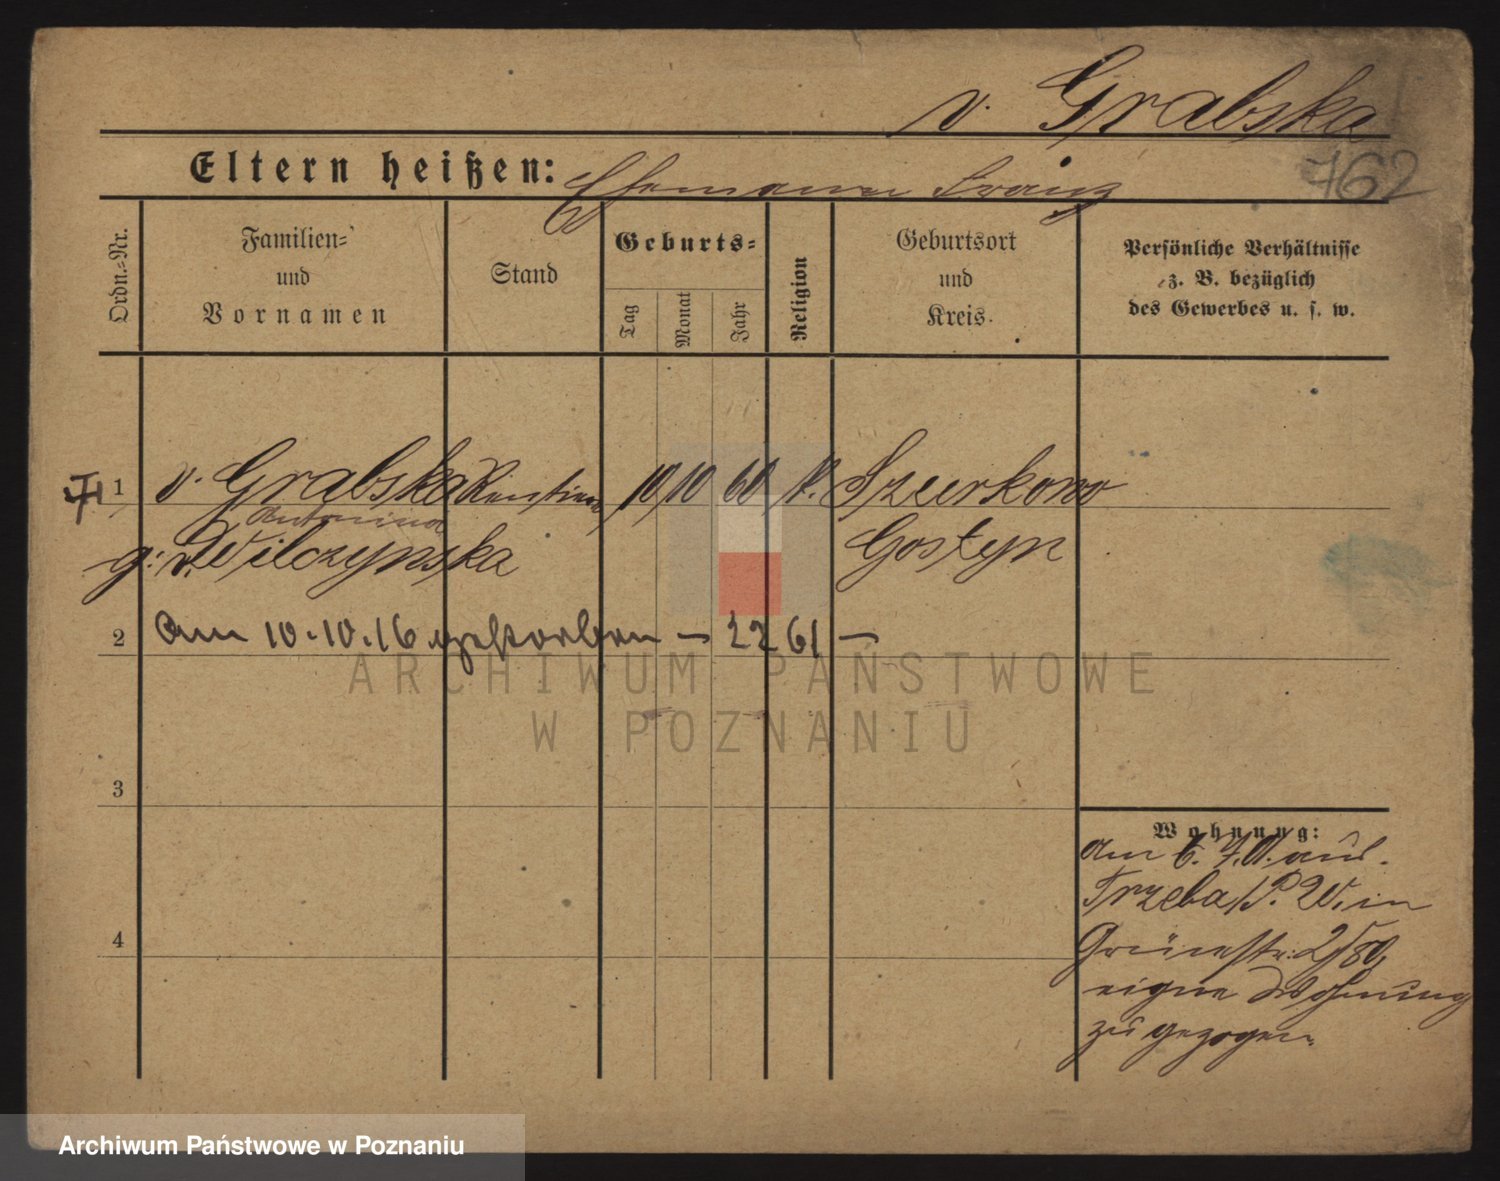 v. Grabska
762
Eltern heißen: Ehemann Franz
Ordn.-Nr.
Familien- und Vornamen
Stand
Geburts-
Tag
Monat
Jahr
Religion
Geburtsort und Kreis.
Persönliche Verhältnisse
z. B. bezüglich
des Gewerbes u. s. w.
1 v. Grabska Rentiere 10 10 60 k. Szurkowo
Antonina
g: v. Wilczynska Gostyn
2 Am 10.10.16 gestorben – 2261 –
ARCHIWUM PAŃSTWOWE
W POZNANIU
3
Wohnung:
am 6. 7. 0. aus
Trzeba, P. W. in
4
Grünestr. 2/
eigne Wohnung
zu gezogen.
Archiwum Państwowe w Poznaniu